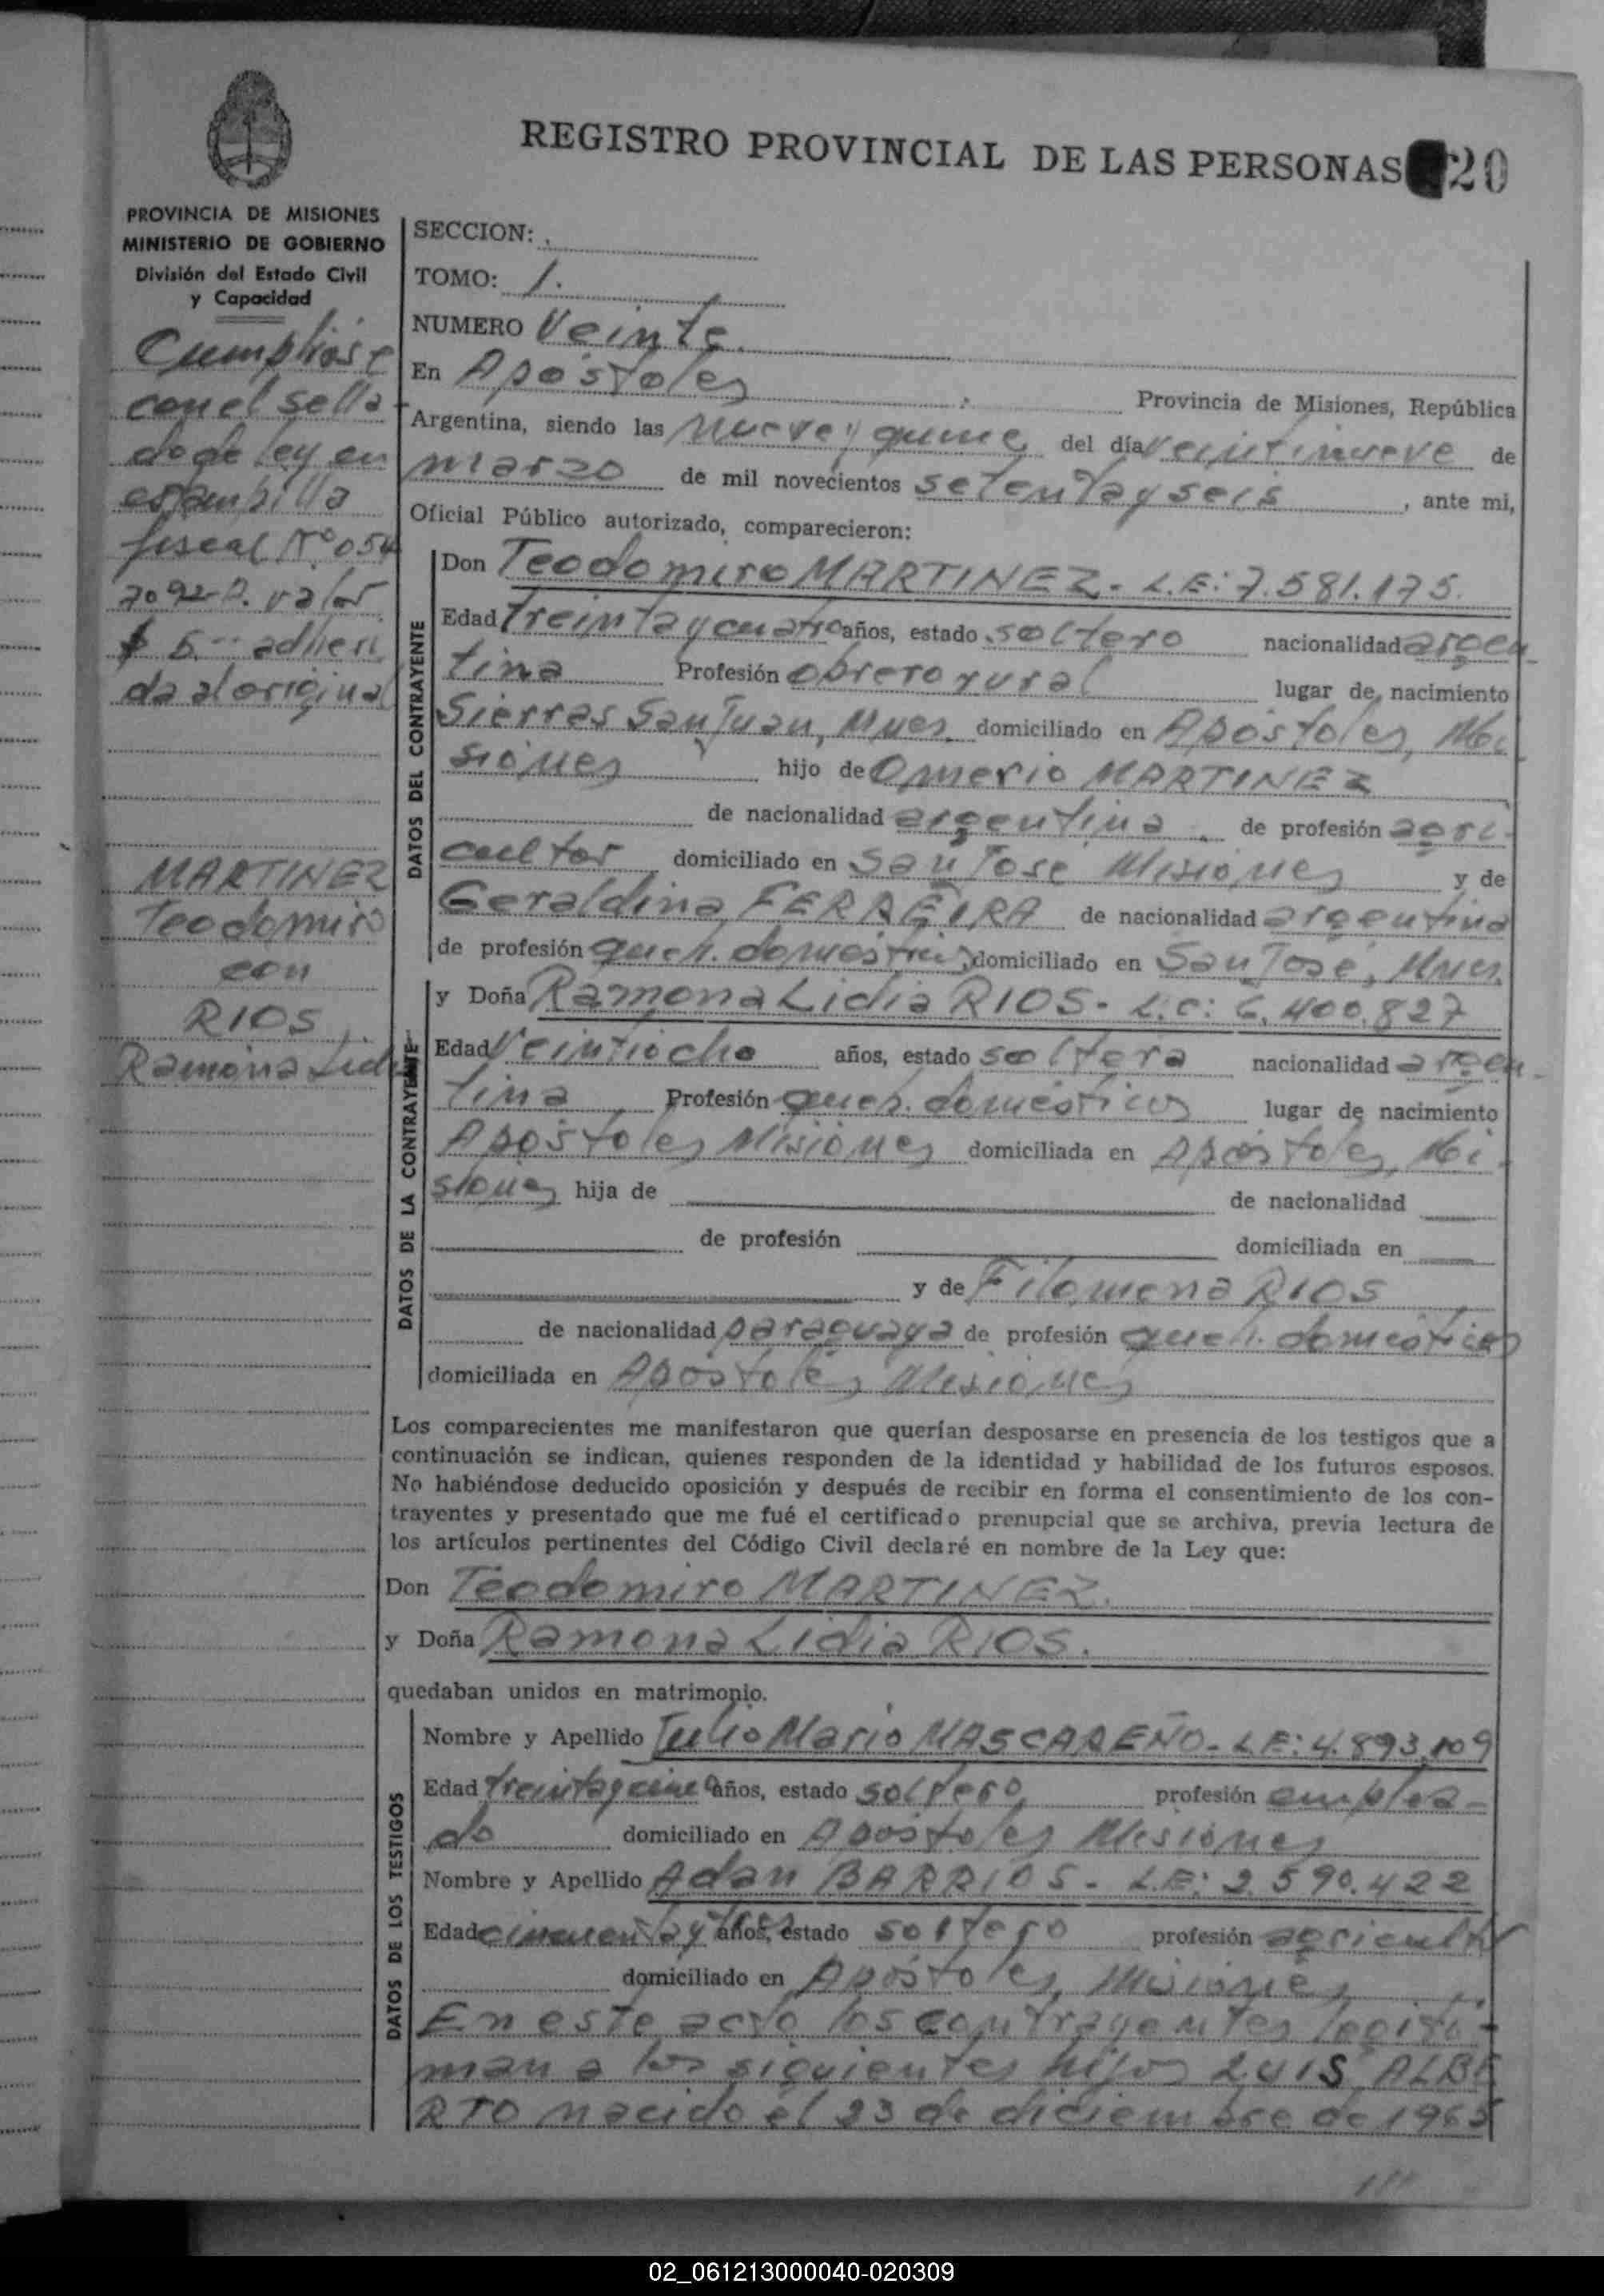 REGISTRO PROVINCIAL DE LAS PERSONAS 20
PROVINCIA DE MISIONES
MINISTERIO DE GOBIERNO
División del Estado Civil
y Capacidad
Cumplióse
con el sella
do de ley en
estampilla
fiscal Nº 054
valor
$ 5.- adheri
da al original
MARTINEZ
Teodomiro
con
RIOS
Ramona Lidia
SECCION:
TOMO: 1.
NUMERO Veinte.
En Apóstoles Provincia de Misiones, República
Argentina, siendo las nueve y quince del día veintinueve de
marzo de mil novecientos setenta y seis, ante mi,
Oficial Público autorizado, comparecieron:
DATOS DEL CONTRAYENTE
Don Teodomiro MARTINEZ - L.E: 7.581.175.
Edad treinta y cuatro años, estado soltero nacionalidad argen
tina Profesión obrero rural lugar de nacimiento
Sierras San Juan, Mnes. domiciliado en Apóstoles, Mi
siones hijo de Omerio MARTINEZ
de nacionalidad argentina de profesión agri-
cultor domiciliado en San José Misiones y de
Geraldina FERREIRA de nacionalidad argentina
de profesión queh. domésticos domiciliado en San José, Mnes.
DATOS DE LA CONTRAYENTE
y Doña Ramona Lidia RIOS - L.C: 6.400.827
Edad Veintiocho años, estado soltera nacionalidad argen-
tina Profesión queh. domésticos lugar de nacimiento
Apóstoles Misiones domiciliada en Apóstoles, Mi-
siones hija de de nacionalidad
de profesión domiciliada en
y de Filomena RIOS
de nacionalidad paraguaya de profesión queh. domésticos
domiciliada en Apóstoles Misiones
Los comparecientes me manifestaron que querían desposarse en presencia de los testigos que a
continuación se indican, quienes responden de la identidad y habilidad de los futuros esposos.
No habiéndose deducido oposición y después de recibir en forma el consentimiento de los con-
trayentes y presentado que me fué el certificado prenupcial que se archiva, previa lectura de
los artículos pertinentes del Código Civil declaré en nombre de la Ley que:
Don Teodomiro MARTINEZ.
y Doña Ramona Lidia RIOS.
quedaban unidos en matrimonio.
DATOS DE LOS TESTIGOS
Nombre y Apellido Julio Mario MASCAREÑO - L.E: 4.893.109
Edad treinta y cinco años, estado soltero profesión emplea-
do domiciliado en Apóstoles Misiones
Nombre y Apellido Adan BARRIOS - L.E: 2.590.422
Edad cincuenta y tres años, estado soltero profesión agricultor
domiciliado en Apóstoles, Misiones
En este acto los contrayentes legiti-
man a los siguientes hijos LUIS ALBE
RTO nacido el 23 de diciembre de 1965
02_061213000040-020309